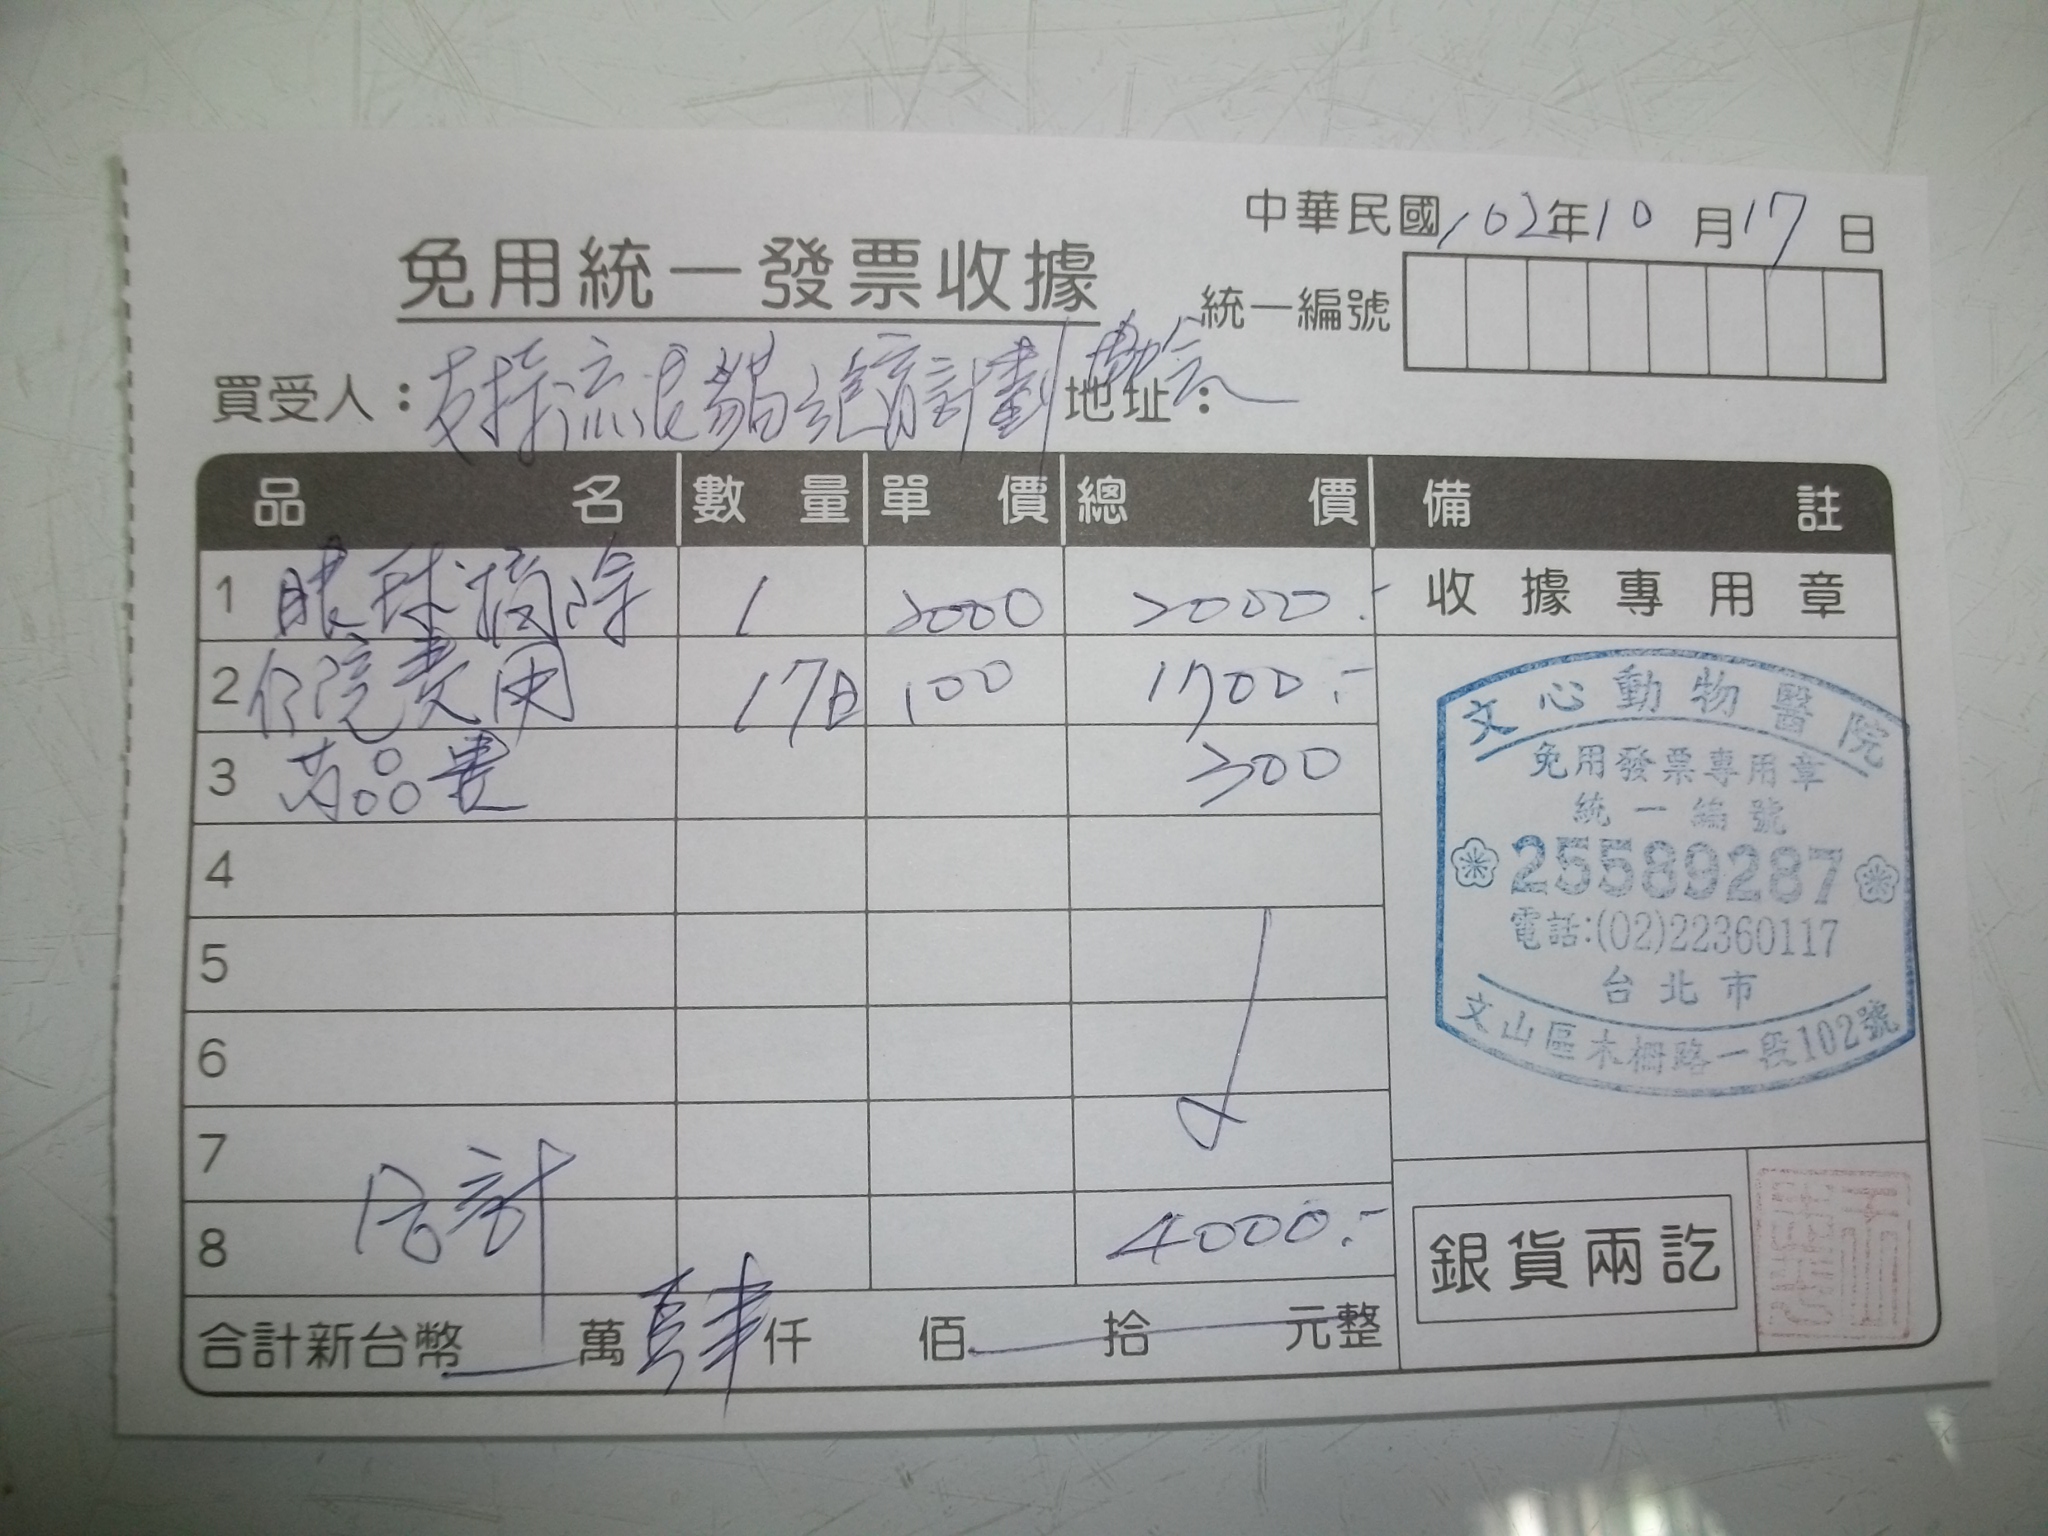 中華民國102年10月17日
免用統一發票收據
統一編號
買受人：支持流浪貓絕育計劃 地址：
品名 數量 單價 總價 備註
1 眼球摘除 1 2000 2000.-
收據專用章
2 住院費用 17日 100 1700.-
3 药品費 300
4
5
6
7
8 合計 4000.-
合計新台幣 萬 肆 仟 佰 拾 元整
文心動物醫院
免用發票專用章
統一編號
25589287
電話:(02)22360117
台北市
文山區木柵路一段102號
銀貨兩訖